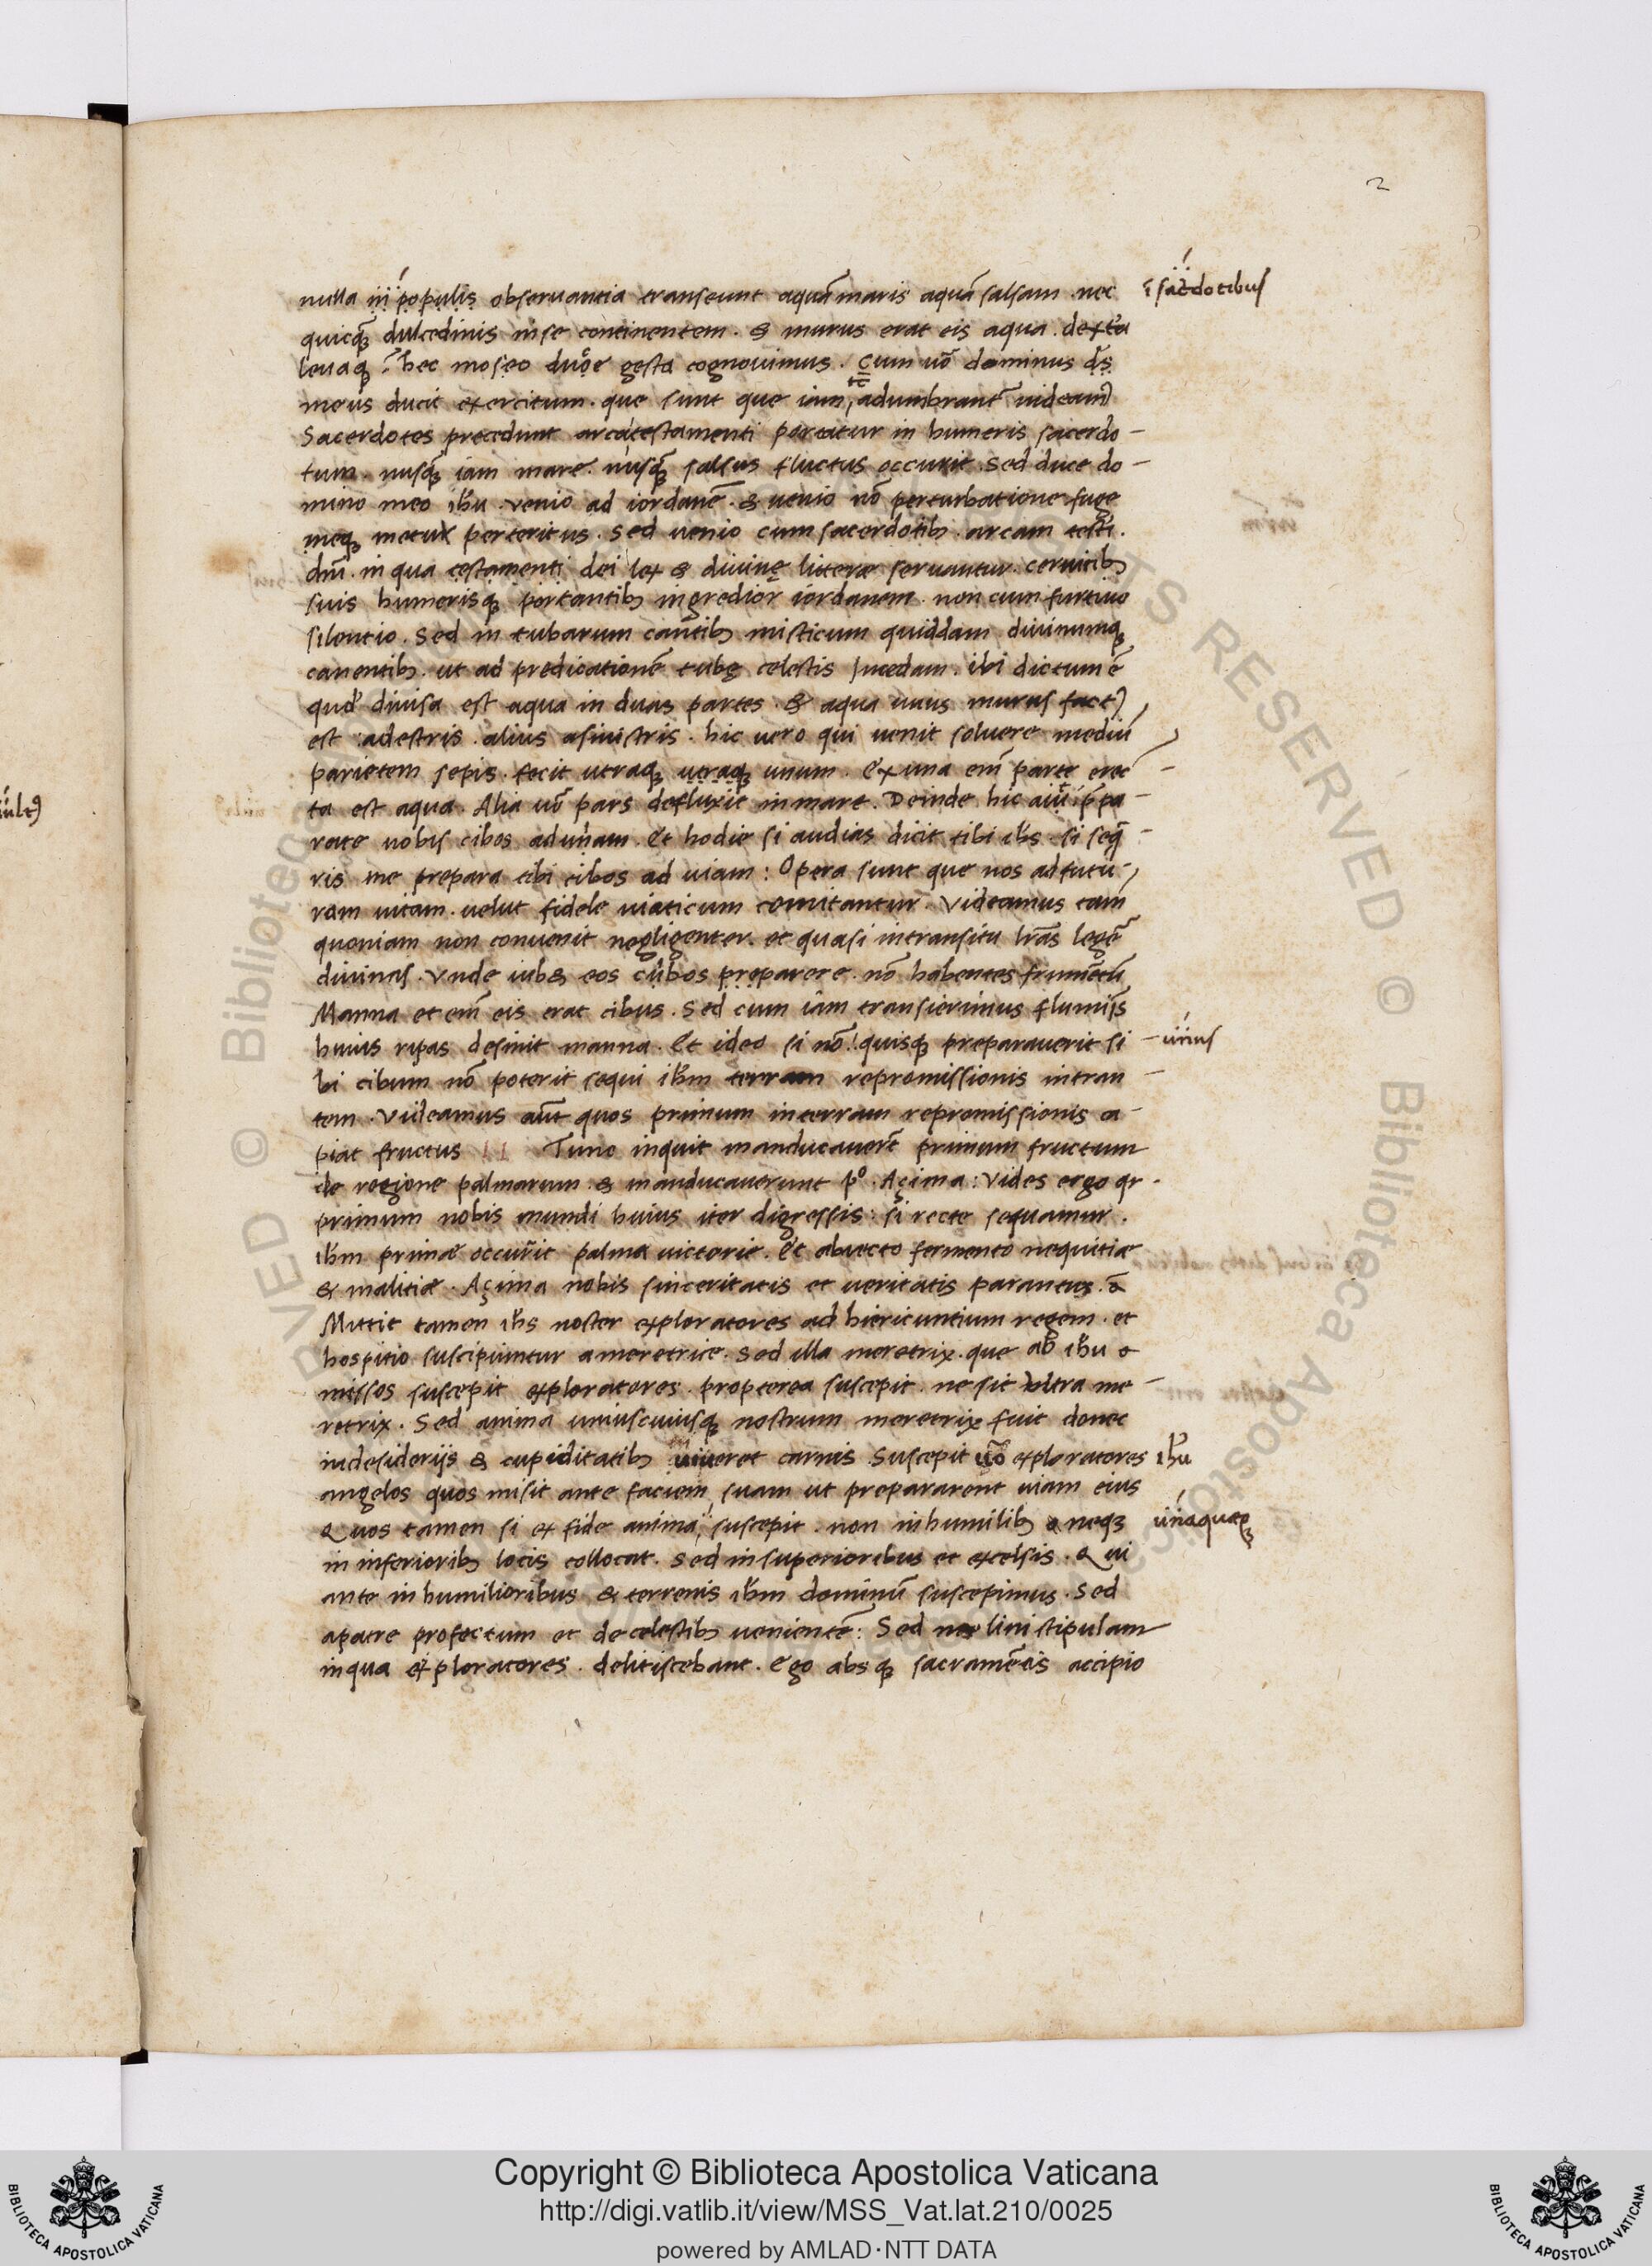 2
nulla in populis obseruantia transeunt aquā maris aquā salsam nec
i sac̄dotibus
quicq̄ dulcedinis in se continentem. & murus erat eis aqua. dext̄a
leuaq; hec moseo duōe gesta cognouimus. Cum uō dominus d̄s
meus ducit exercitum. que sunt que iam adumbrant̄ uideam
Sacerdotes precedunt arca testamenti portatur in humeris sacerdo-
tum. nusq̄ iam mare. nusq̄ salsus fluctus occurrit. Sed duce do-
mino meo ih̄u. venio ad iordanē. & uenio nō perturbatione fuge
meq; metux perteritus. Sed uenio cum sacerdotib; arcam testi.
dn̄i. in qua testamenti dei lex & diuinę litterae seruantur. ceruicib;
suis humerisq; portantib; ingredior iordanem. non cum furtiuo
silentio. Sed in tubarum cantib; misticum quiddam diuinumq;
canentib;. ut ad predicationē tubę celestis incedam. ibi dictum ē
quod diuisa est aqua in duas partes. & aqua unus murus fact
est adestris. alius asinistris. hic uero qui uenit soluere mediū
parietem sepis. fecit utraq; utraq; unum. Ex una em̄ parte erec-
ta est aqua. Alia uō pars defluxit in mare. Deinde hic aiūt p̄pa-
rate uobis cibos ad uiam. Et hodie si audias dicit tibi ih̄s. si seq̄-
ris me prepara tibi cibos ad uiam: Opera sunt que nos ad futu-
ram uitam. uelut fidele uiaticum comitantur. Videamus tam
quoniam non conuenit negligenter. et quasi in transitu lr̄as legē
diuinas. Vnde iub& eos cibos preparare. nō habentes frumētū
Manna et em̄ eis erat cibus. Sed cum iam transierimus flumīs
huius ripas desinit manna. Et ideo si nō quisq; preparauerit si-
unus
bi cibum nō poterit sequi ih̄m terram repromissionis intran-
tem. Videamus aūt quos primum in terram repromissionis ca-
piat fructus Tunc inquit manducauer̄t primum fructum
de regione palmarum. & manducauerunt p°. Açima: Vides ergo qr.
primum nobis mundi huius iter digressis: si recte sequamur.
ih̄m primae occurrit palma uictorie. Et abiecto fermento nequitiae
& malitiae. Açima nobis sinceritatis et ueritatis parantur.
Mittit tamen ih̄s noster exploratores ad hiericuntium regem. et
hospitio suscipiuntur a meretrice. Sed illa meretrix. que ab ih̄u
missos suscepit exploratores. propterea suscepit. ne sit ultra me-
retrix. Sed anima uniuscuiusq; nostrum meretrix fuit donec
in desiderijs & cupiditatib; uiueret carnis Suscepit uō exploratores
ih̄u
angelos quos misit ante faciem suam ut prepararent uiam eius
Quos tamen si ex fide anima suscepit. non in humilib; neq;
unaquaeq;
in inferiorib; locis collocat. Sed in superioribus et excelsis. Qui
ante in humilioribus & terrenis ih̄m dominū suscepimus. Sed
a patre profectum et de celestib; uenientē: Sed nec lini stipulam
in qua exploratores. delitiscebant. Ego absq; sacramētis accipio
Copyright © Biblioteca Apostolica Vaticana
http://digi.vatlib.it/view/MSS_Vat.lat.210/0025
powered by AMLAD·NTT DATA